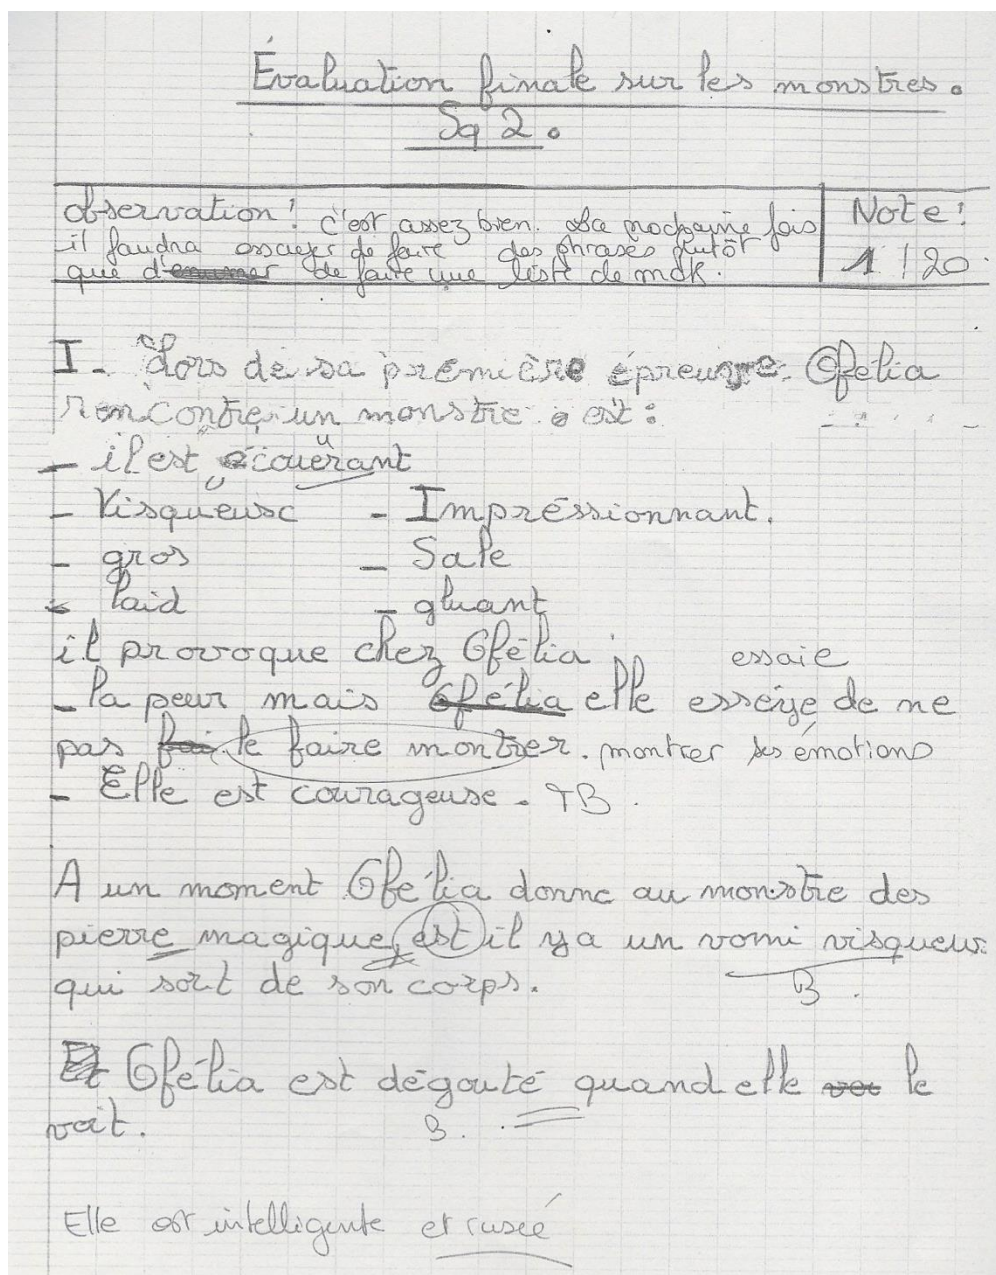 Évaluation finale sur les monstres.
Sq 2.
Observation! c'est assez bien. La prochaine fois
il faudra essayer de faire des phrases plutôt
que d' de faire une liste de mots.
Note!
1 / 20
I - Lors de sa première épreuve Ofélia
rencontre un monstre. est:
- il est écouérant
- Visqueuse - Impréssionnant.
- gros - Sale
- laid - gluant
il provoque chez Ofélia :
essaie
- la peur mais Ofélia elle esseiye de ne
pas le faire montrer. montrer ses émotions
- Elle est courageuse. TB.
A un moment Ofélia donne au monstre des
pierre magique, est il y a un vomi visqueux
qui sort de son corps. B.
Et Ofélia est dégouté quand elle le
voit. B.
Elle est intelligente et rusée